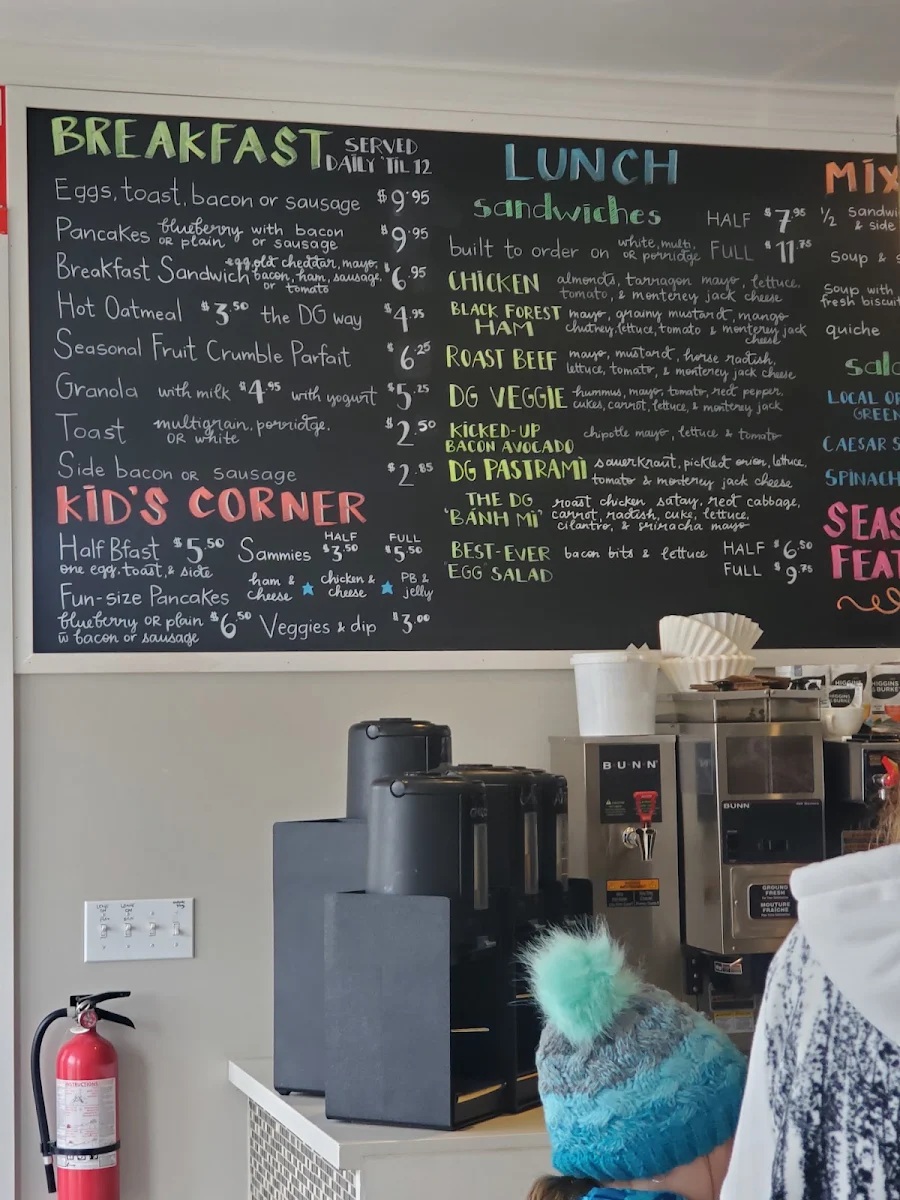 BREAKFAST SERVED DAILY 'TIL 12
Eggs, toast, bacon or sausage $9.95
Pancakes blueberry or plain with bacon or sausage $9.95
Breakfast Sandwich egg, old cheddar, mayo, bacon, ham, sausage, or tomato $6.95
Hot Oatmeal $3.50 the DG way $4.95
Seasonal Fruit Crumble Parfait $6.25
Granola with milk $4.95 with yogurt $5.25
Toast multigrain, porridge, or white $2.50
Side bacon or sausage $2.85
KID'S CORNER
Half Bfast $5.50
one egg, toast, & side
Fun-size Pancakes
blueberry or plain $6.50
w bacon or sausage
HALF FULL
Sammies $3.50 $5.50
ham & cheese chicken & cheese PB & jelly
Veggies & dip $3.00
LUNCH
sandwiches HALF $7.95
built to order on white, multi, or porridge FULL $11.75
CHICKEN almonds, tarragon mayo, lettuce,
tomato, & monterey jack cheese
BLACK FOREST HAM mayo, grainy mustard, mango
chutney, lettuce, tomato & monterey jack
cheese
ROAST BEEF mayo, mustard, horse radish,
lettuce, tomato, & monterey jack cheese
DG VEGGIE hummus, mayo, tomato, red pepper,
cukes, carrot, lettuce, & monterey jack
KICKED-UP
BACON AVOCADO chipotle mayo, lettuce & tomato
DG PASTRAMI sauerkraut, pickled onion, lettuce,
tomato & monterey jack cheese
THE DG
"BÁNH MÌ" roast chicken satay, red cabbage,
carrot, radish, cuke, lettuce,
cilantro, & sriracha mayo
BEST-EVER
"EGG" SALAD bacon bits & lettuce HALF $6.50
FULL $9.75
MIX
1/2 sandwi
& side
Soup &
Soup with
fresh biscuit
quiche
sala
LOCAL OR
GREEN
CAESAR S
SPINACH
SEAS
FEAT
BUNN
BUNN
GROUND
FRESH
MOUTURE
FRAÎCHE
HIGGINS
& BURKE
HIGGINS
& BURKE
INSTRUCTIONS